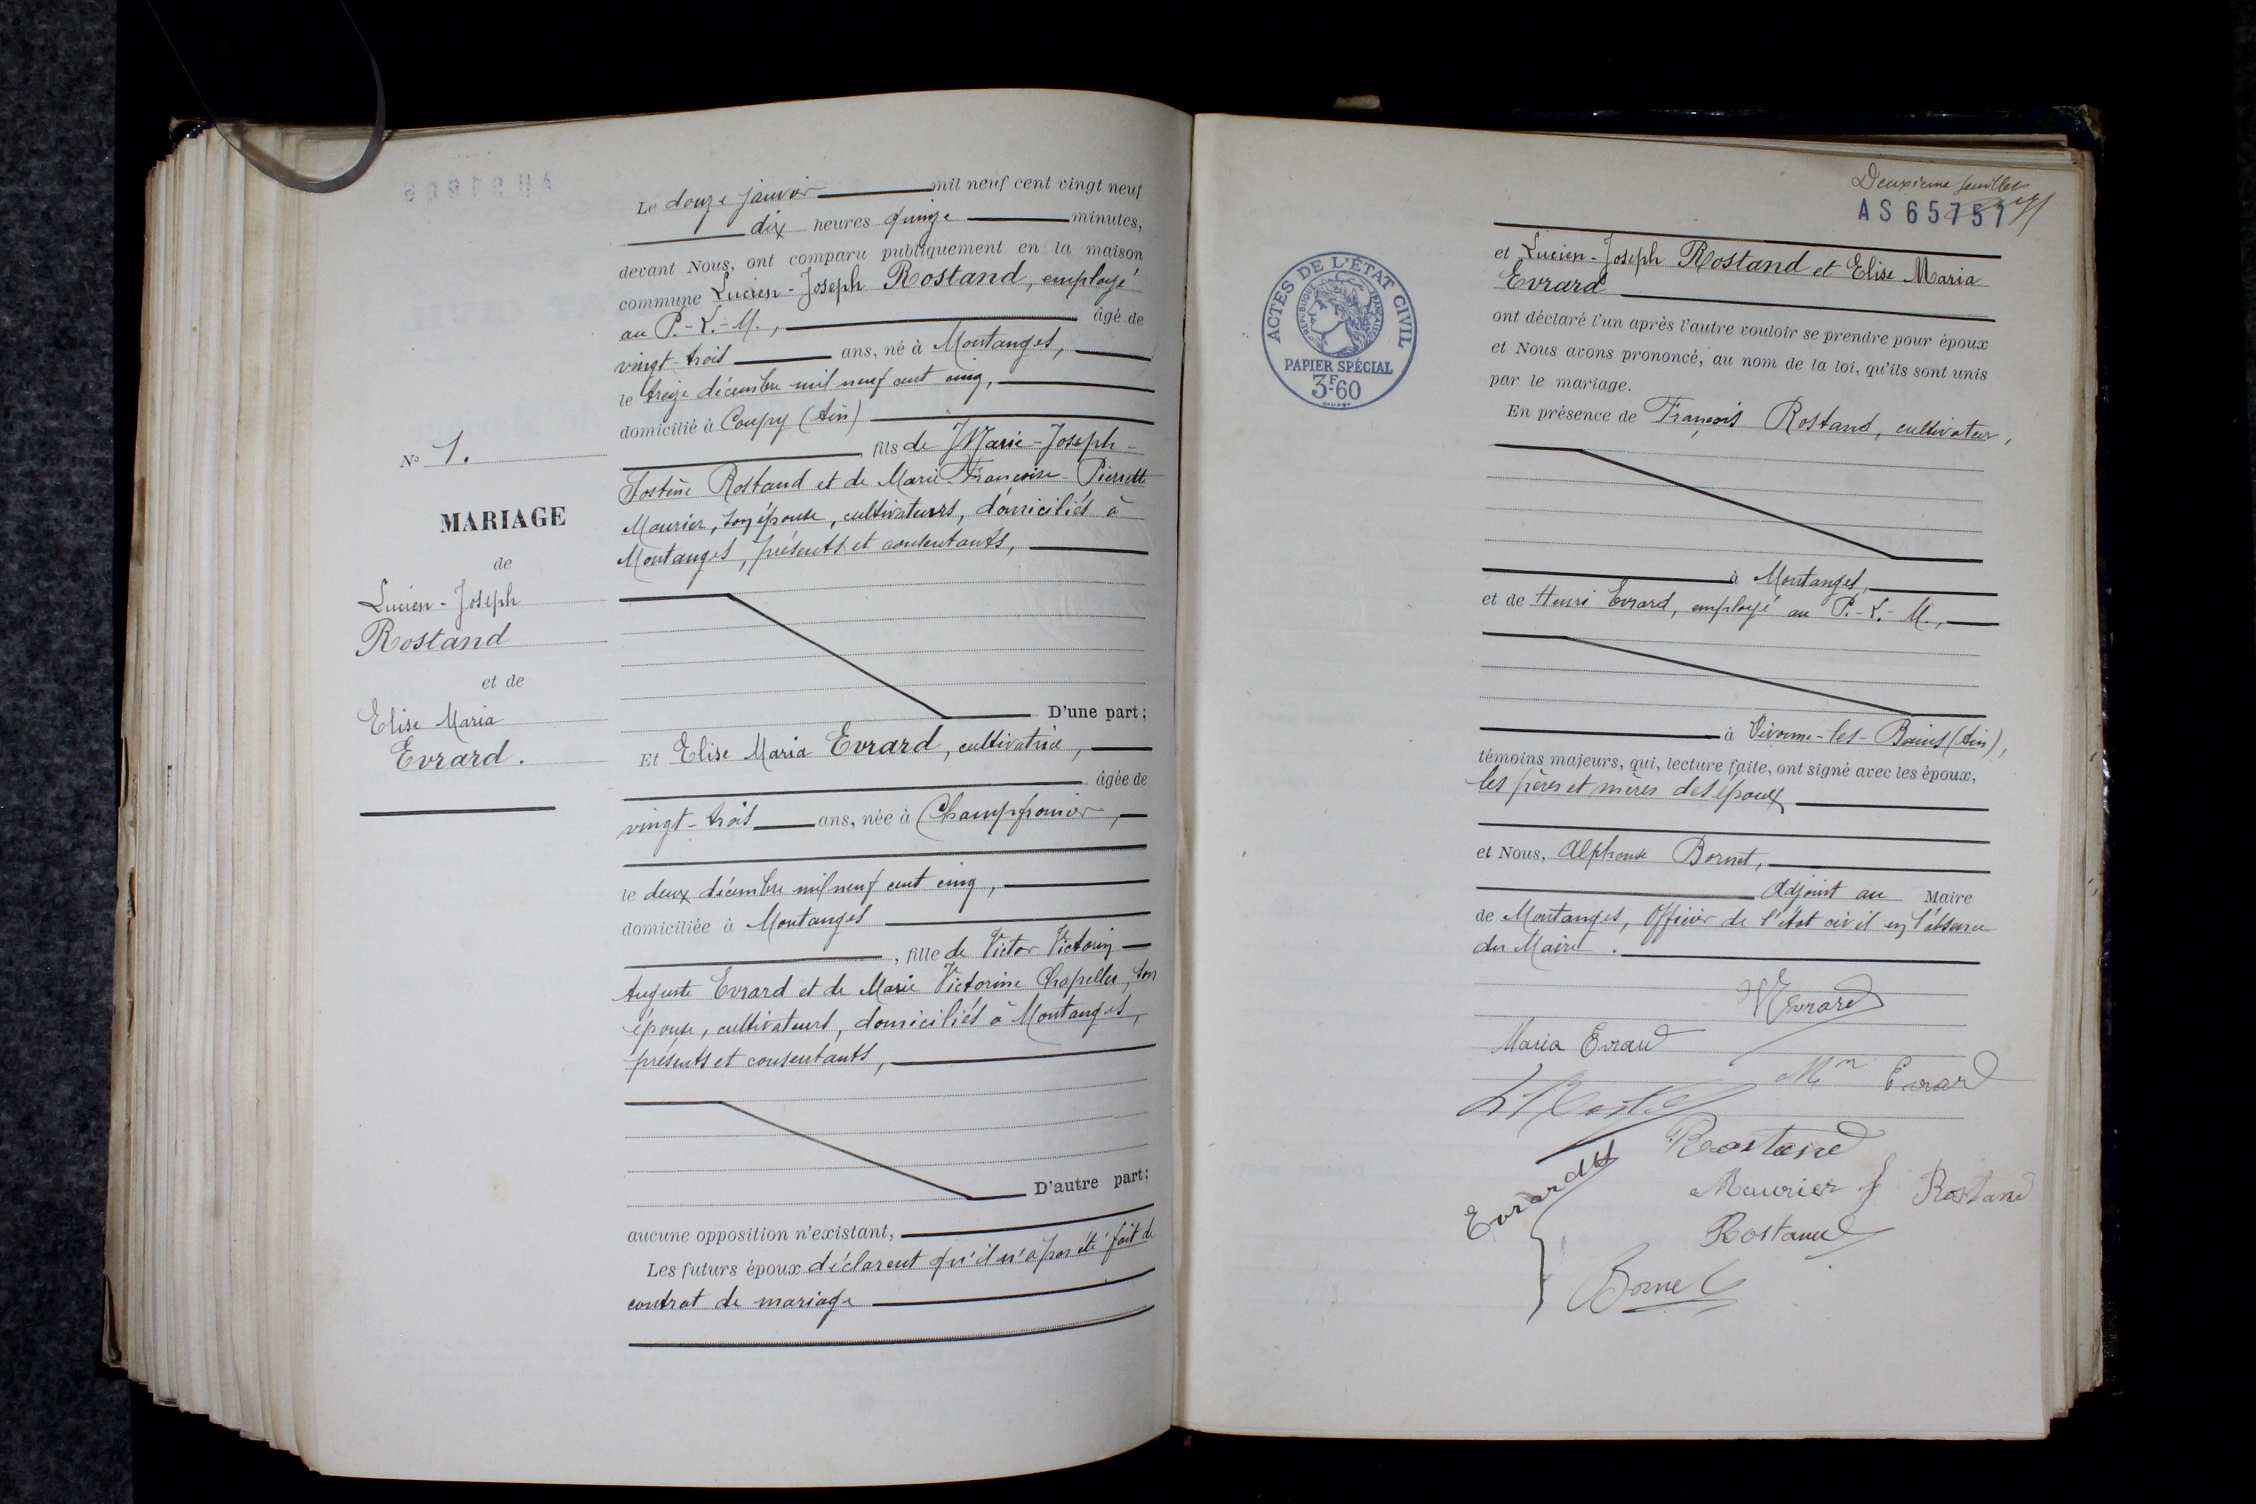 Le douze janvier mil neuf cent vingt neuf
dix heures quinze minutes,
devant Nous, ont comparu publiquement en la maison
commune Lucien-Joseph Rostand, employé
au P.-L.-M., âgé de
vingt-trois ans, né à Montanges,
le treize décembre mil neuf cent cinq,
domicilié à Coupy (Ain)
, fils de Marie-Joseph-
Sostène Rostand et de Marie Françoise Pierrette
Maurier, son épouse, cultivateurs, domiciliés à
Montanges, présents et consentants,
D'une part;
Et Elise Maria Evrard, cultivatrice,
âgée de
vingt-trois ans, née à Champfromier,
le deux décembre mil neuf cent cinq,
domiciliée à Montanges
, fille de Victor Victorin
Auguste Evrard et de Marie Victorine Chapelles, son
épouse, cultivateurs, domiciliés à Montanges,
présents et consentants,
D'autre part;
aucune opposition n'existant,
Les futurs époux déclarent qu'il n'a pas été fait de
contrat de mariage
No 1.
MARIAGE
de
Lucien-Joseph
Rostand
et de
Elise Maria
Evrard.
Deuxième feuillet
AS 65751
ACTES DE L'ÉTAT CIVIL
RÉPUBLIQUE FRANÇAISE
PAPIER SPÉCIAL
3F60
et Lucien-Joseph Rostand et Elise Maria
Evrard
ont déclaré l'un après l'autre vouloir se prendre pour époux
et Nous avons prononcé, au nom de la loi, qu'ils sont unis
par le mariage.
En présence de François Rostand, cultivateur,
à Montanges,
et de Henri Evrard, employé au P.-L.-M.,
à Divonne-les-Bains (Ain),
témoins majeurs, qui, lecture faite, ont signé avec les époux,
les pères et mères des époux
et Nous, Alphonse Bornet,
Adjoint au Maire
de Montanges, Officier de l'état civil en l'absence
du Maire.
Evrard
Maria Evrard
Mn Evrard
Rostand
Evrard
Maurier f Rostand
Rostand
Bornet